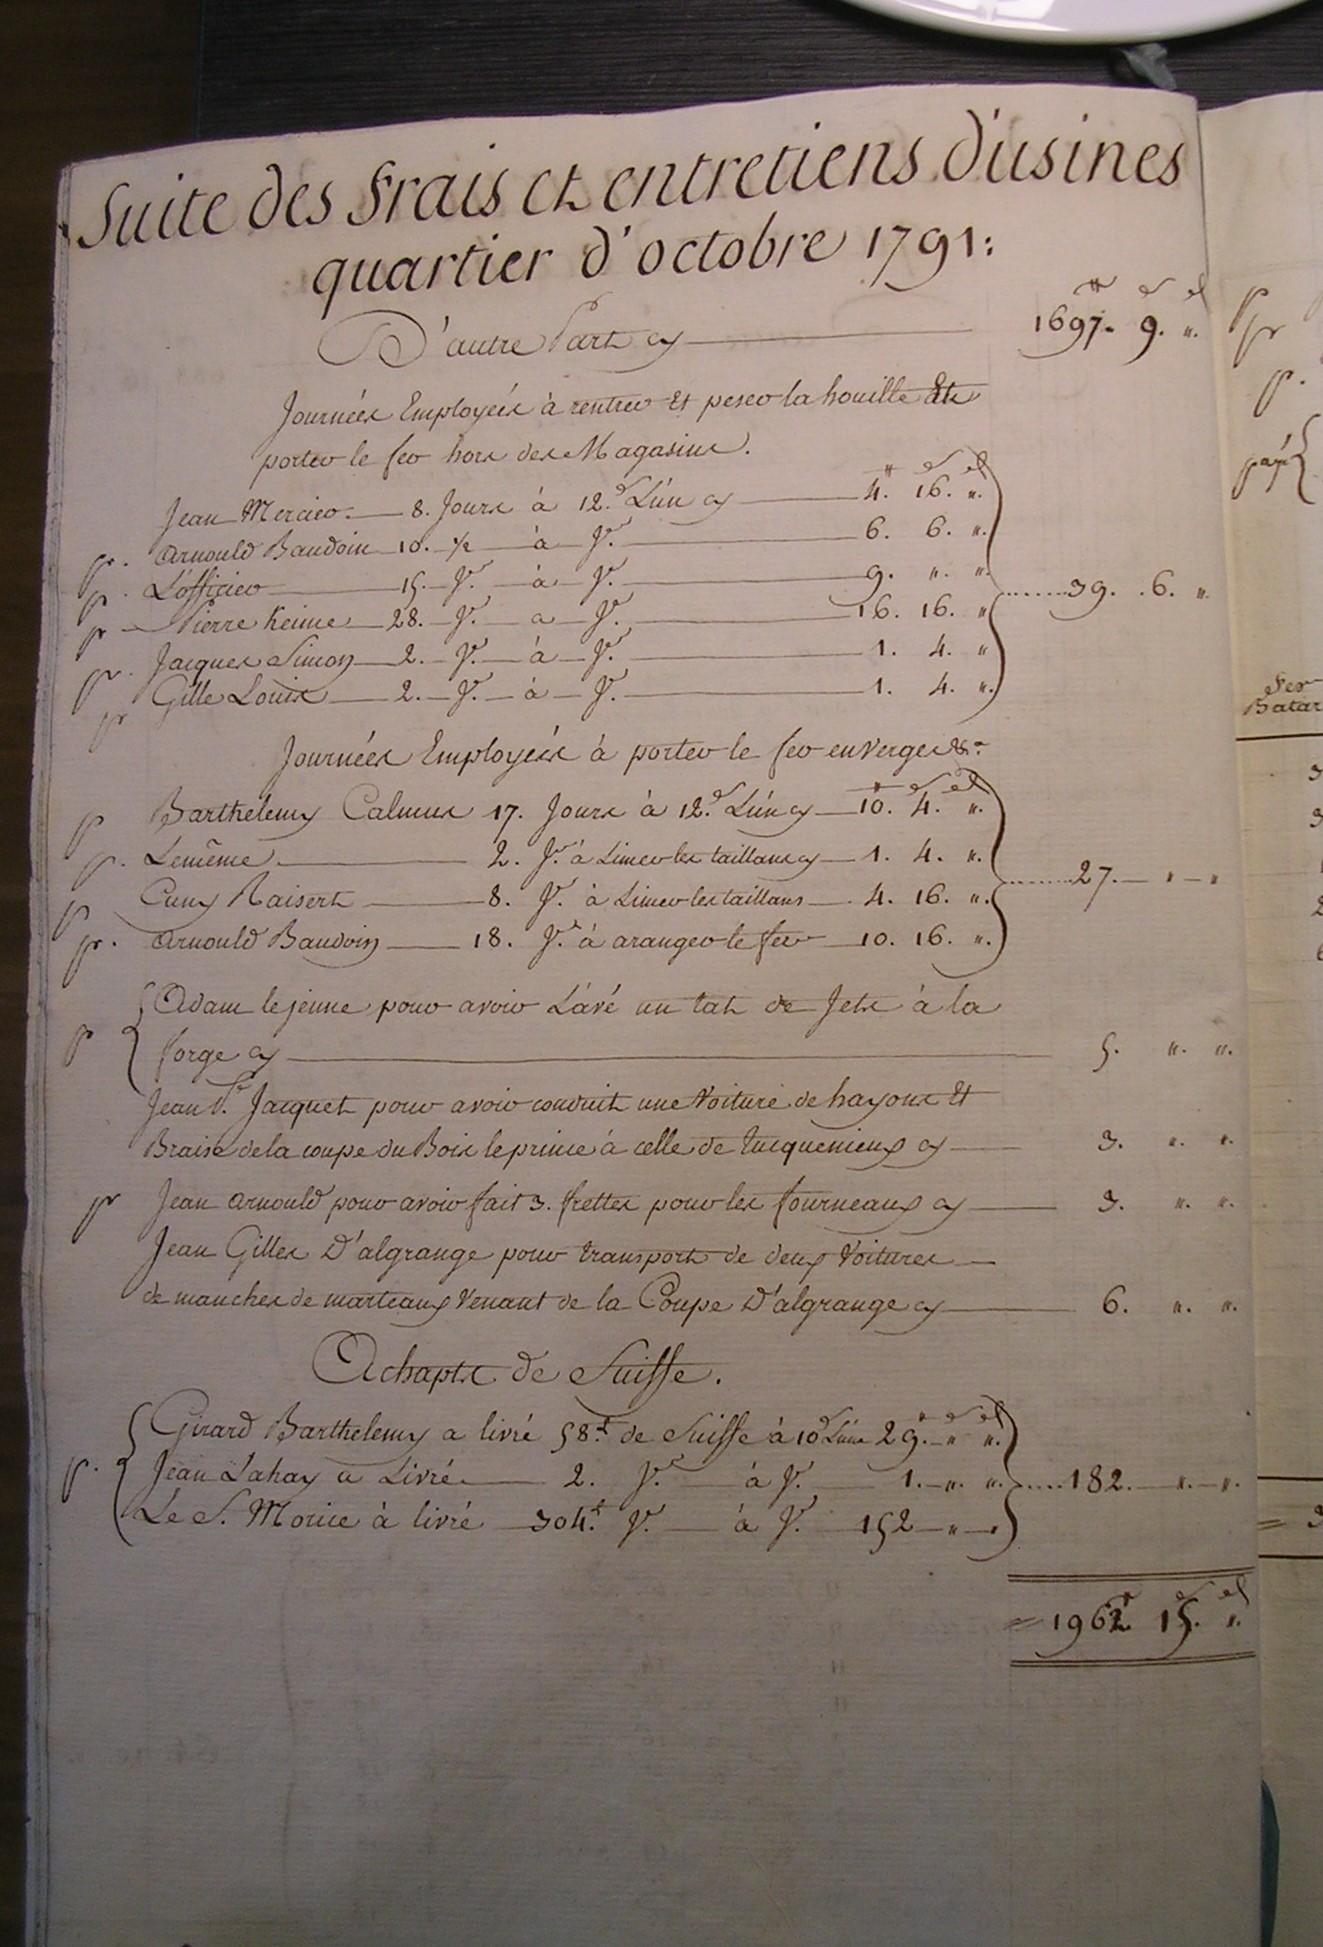 Suite des frais et entretiens d'usines
quartier d'octobre 1791:
₶ s d
D'autre Part cy 1697. 9. ".
Journées Employées à rentrer Et peser la houille Et
porter le fer hors des Magasins.
₶ s d
Jean Mercier. 8. Jours à 12.s L'ún cy 4. 16. ".
pr. Arnould Baudoin 10. ½ à J.r 6. 6. ".
pr. L'officier 15. J.r à J.r 9. ". ".
pr Pierre Keime 28. J.r a J.r 16. 16. " ......39. .6. ".
pr. Jacques Simon 2. J.r à J.r 1. 4. "
pr Gille Louis 2. J.r à J.r 1. 4. ".
Journées Employées à porter le fer en Verges &.a
₶ s d
p Barthélemy Calmus 17. Jours à 12.s L'ún cy 10. 4. ".
pr. Lemême. 2. J.rs à Limer les taillans cy 1. 4. ".
......27. " "
p Cuny Raisert 8. J.r à Limer les taillans 4. 16. ".
pr. Arnould Baudoin 18. J.rs à aranger le fer 10. 16. ".
Adam le jeune pour avoir Lavé un tat de Jets à la
p forge cy 5. ". ".
Jean P.re Jacquet pour avoir conduit une Voiture de hayons Et
Braise de la coupe du Bois le prince à celle de tucquenieux cy 3. ". ".
pr Jean Arnould pour avoir fait 3. frettes pour les fourneaux cy 3. ". ".
Jean Gilles D'algrange pour transport de deux Voitures
de manches de marteaux Venant de la Coupe D'algrange cy 6. ". ".
Achapts de Suisse.
₶ s d
Girard Barthelemy a livré 58.t de Suisse à 10s L'úne 29. " ".
p. Jean Lahay a Livré 2. J.r à J.r 1. ". ". ....182. ". ".
Le S. Morice à livré 304.t J.r à J.r 152 " "
₶ s d
= 1962. 15. ".
p
pr
pr.
payé
Fer
Batar